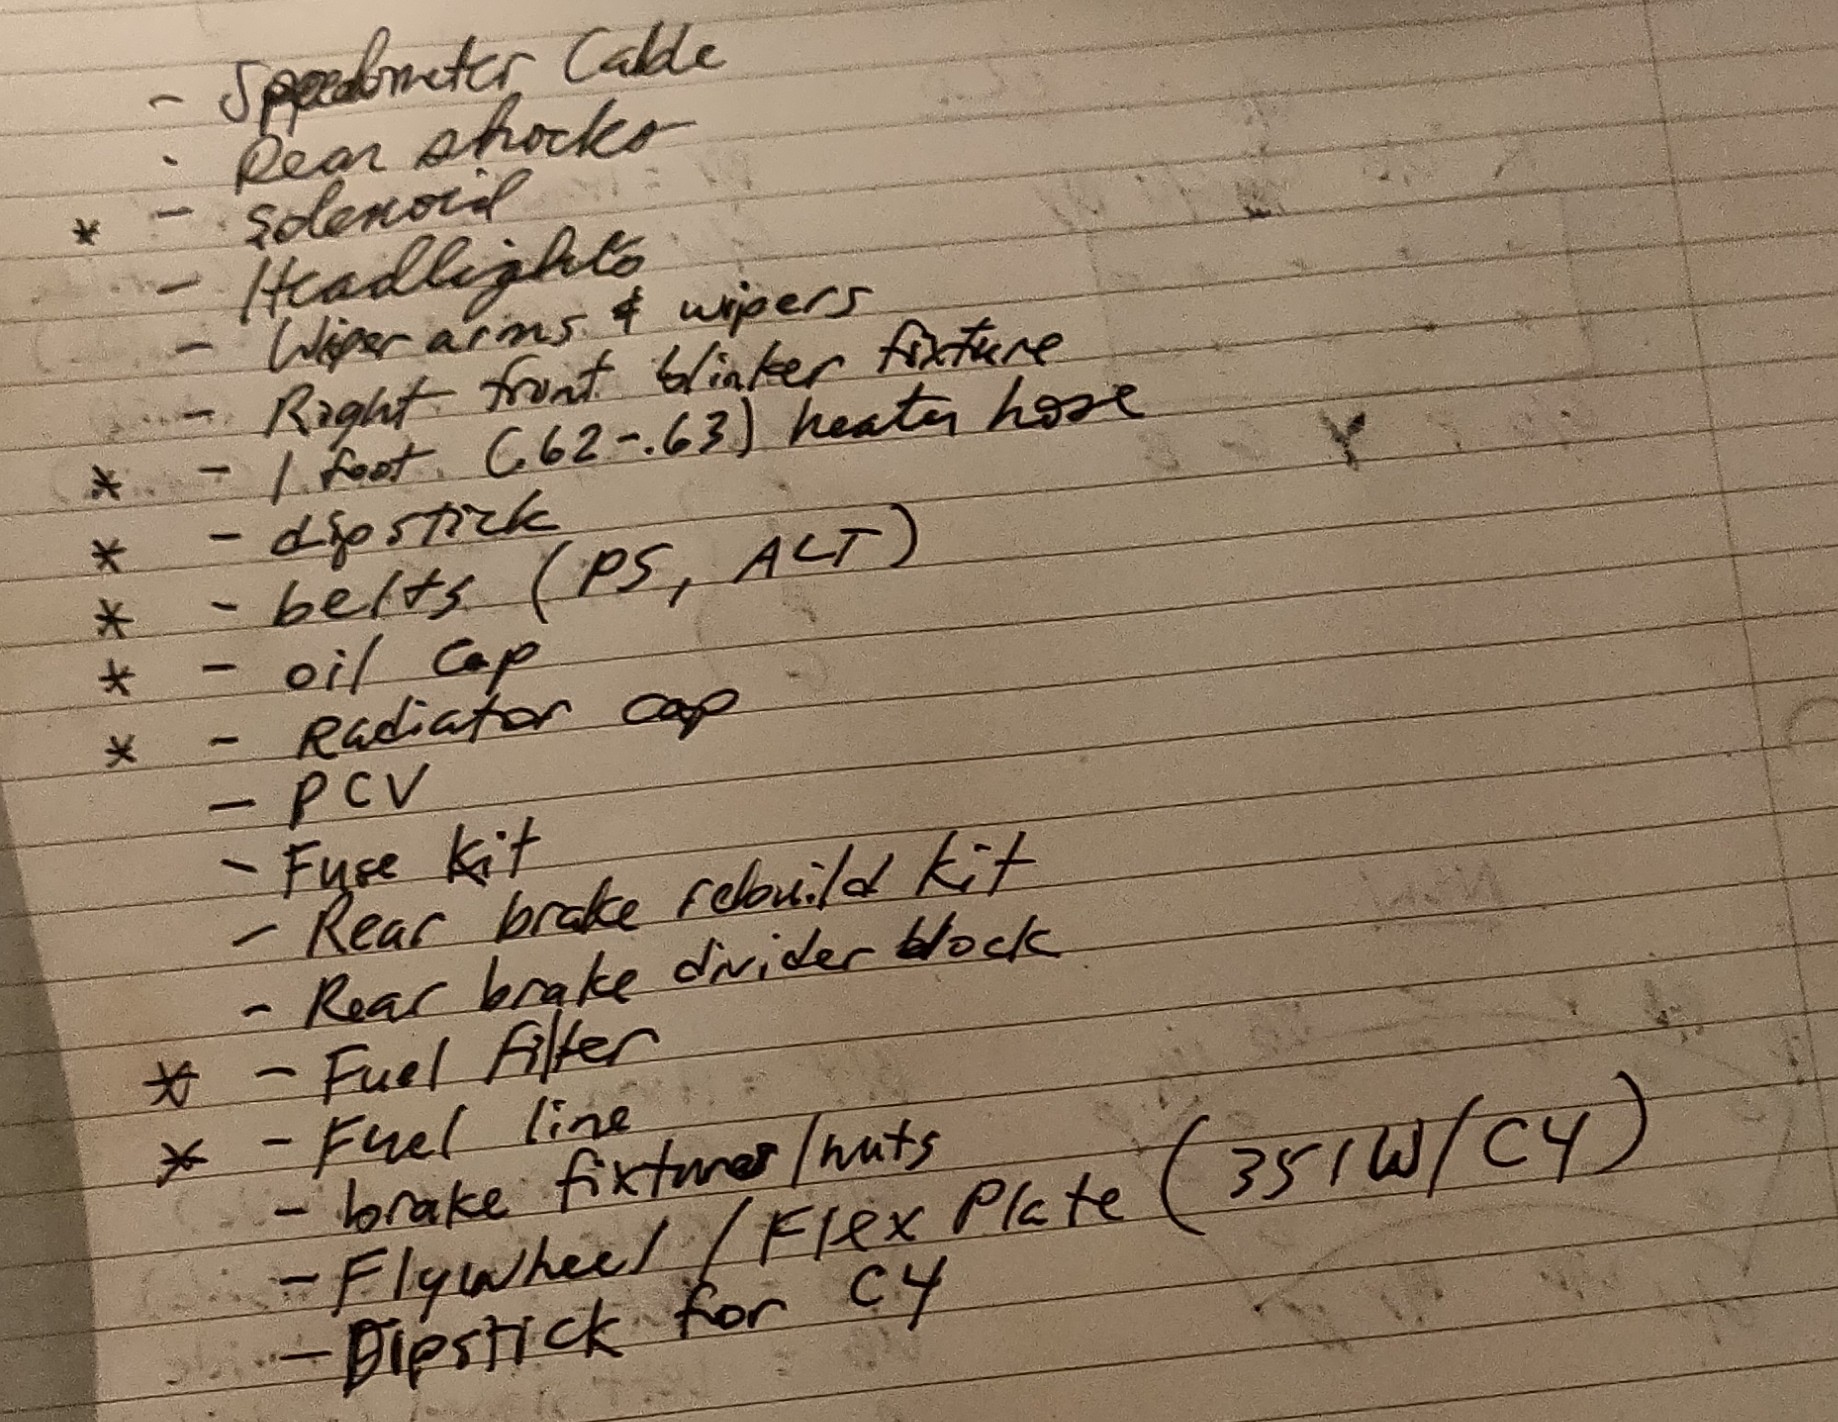 - Speedometer Cable
- Rear shocks
* - Solenoid
- Headlights
- Wiper arms & wipers
- Right front blinker fixture
* - 1 foot (.62-.63) heater hose
* - dipstick
* - belts (PS, ALT)
* - oil cap
* - Radiator cap
- PCV
- Fuse Kit
- Rear brake rebuild kit
- Rear brake divider block
* - Fuel filter
* - Fuel line
- brake fixtures/nuts
- Flywheel / Flex Plate (351W/C4)
- Dipstick for C4